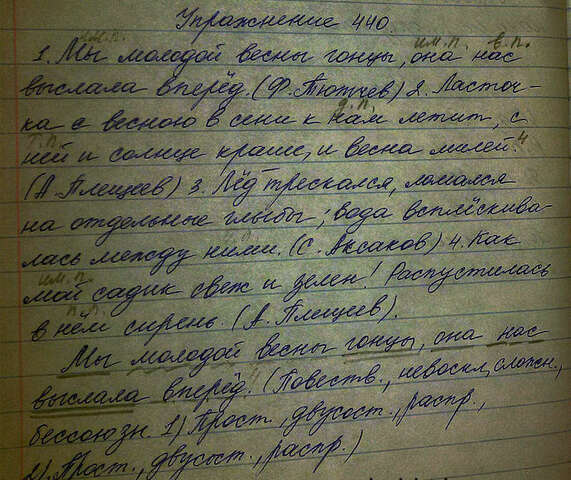 Упражнение 440.
им.п. им.п. в.п.
1. Мы молодой весны гонцы, она нас
выслала вперёд. (Ф. Тютчев) 2. Ласточ-
д.п.
ка с весною в сени к нам летит, с
т.п.
ней и солнце краше, и весна милей.4
(А. Плещеев) 3. Лёд трескался, ломался
на отдельные глыбы; вода всплёскива-
лась между ними. (С. Аксаков) 4. Как
им.п.
мой садик свеж и зелен! Распустилась
п.п.
в нём сирень. (А. Плещеев).
Мы молодой весны гонцы, она нас
выслала вперёд.4 (Повеств., невоскл, сложн.,
бессоюзн. 1) Прост., двусост., распр.,
2) Прост., двусост., распр.)